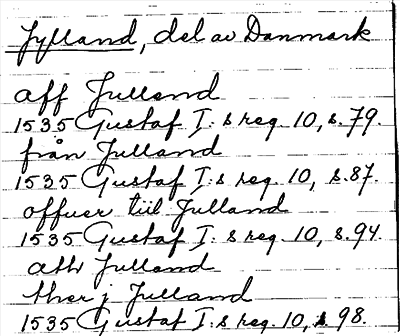 Jylland, del av Danmark
aff Julland
1535 Gustaf I:s reg. 10, s.79.
från Julland
1535 Gustaf I:s reg. 10, s.87.
offuer till Julland
1535 Gustaf I:s reg. 10, s.94.
ath Julland
ther j Julland
1535 Gustaf I:s reg. 10, s. 98.